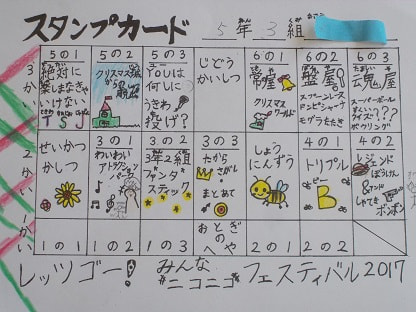 スタンプカード 5年3組
3かい
5の1
絶対に
楽しまなきゃ
いけない
TSJ
5の2
クリスマス
5の3
YOUは
何しに
うさわ
投げ?
じどう
かいしつ
6の1
常屋
クリスマス
ワールド
6の2
盤屋!
6の3
魂屋
スーパーボール
クイズ!???
ボウリング
2かい
せいかつ
かしつ
3の1
わいわい
アトラクション
パーク
3の2
3年2組
ファンタ
スティック
3の3
たから
さがし
&
まとあて
しょう
にんずう
4の1
トリプル
ビー
B
4の2
レジェンド
ぼうけん
&アンド
しゃてき
ボンボン
1かい
1の1
1の2
1の3
おとぎ
の
へや
2の1
2の2
レッツゴー! みんな
ニコニコ フェスティバル2017